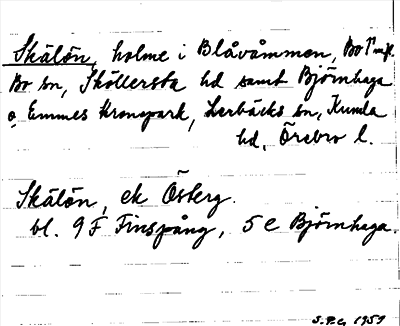 Skälön, holme i Blåvåmmen, Bo
Bo sn, Sköllersta hd samt Björnhaga
o Emmes Kronopark, Lerbäcks sn, Kumla
hd, Örebro l.
Skälön, ek Österg.
bl. 9 F Finspång, 5 e Björnhaga.
S.P.G. 1959